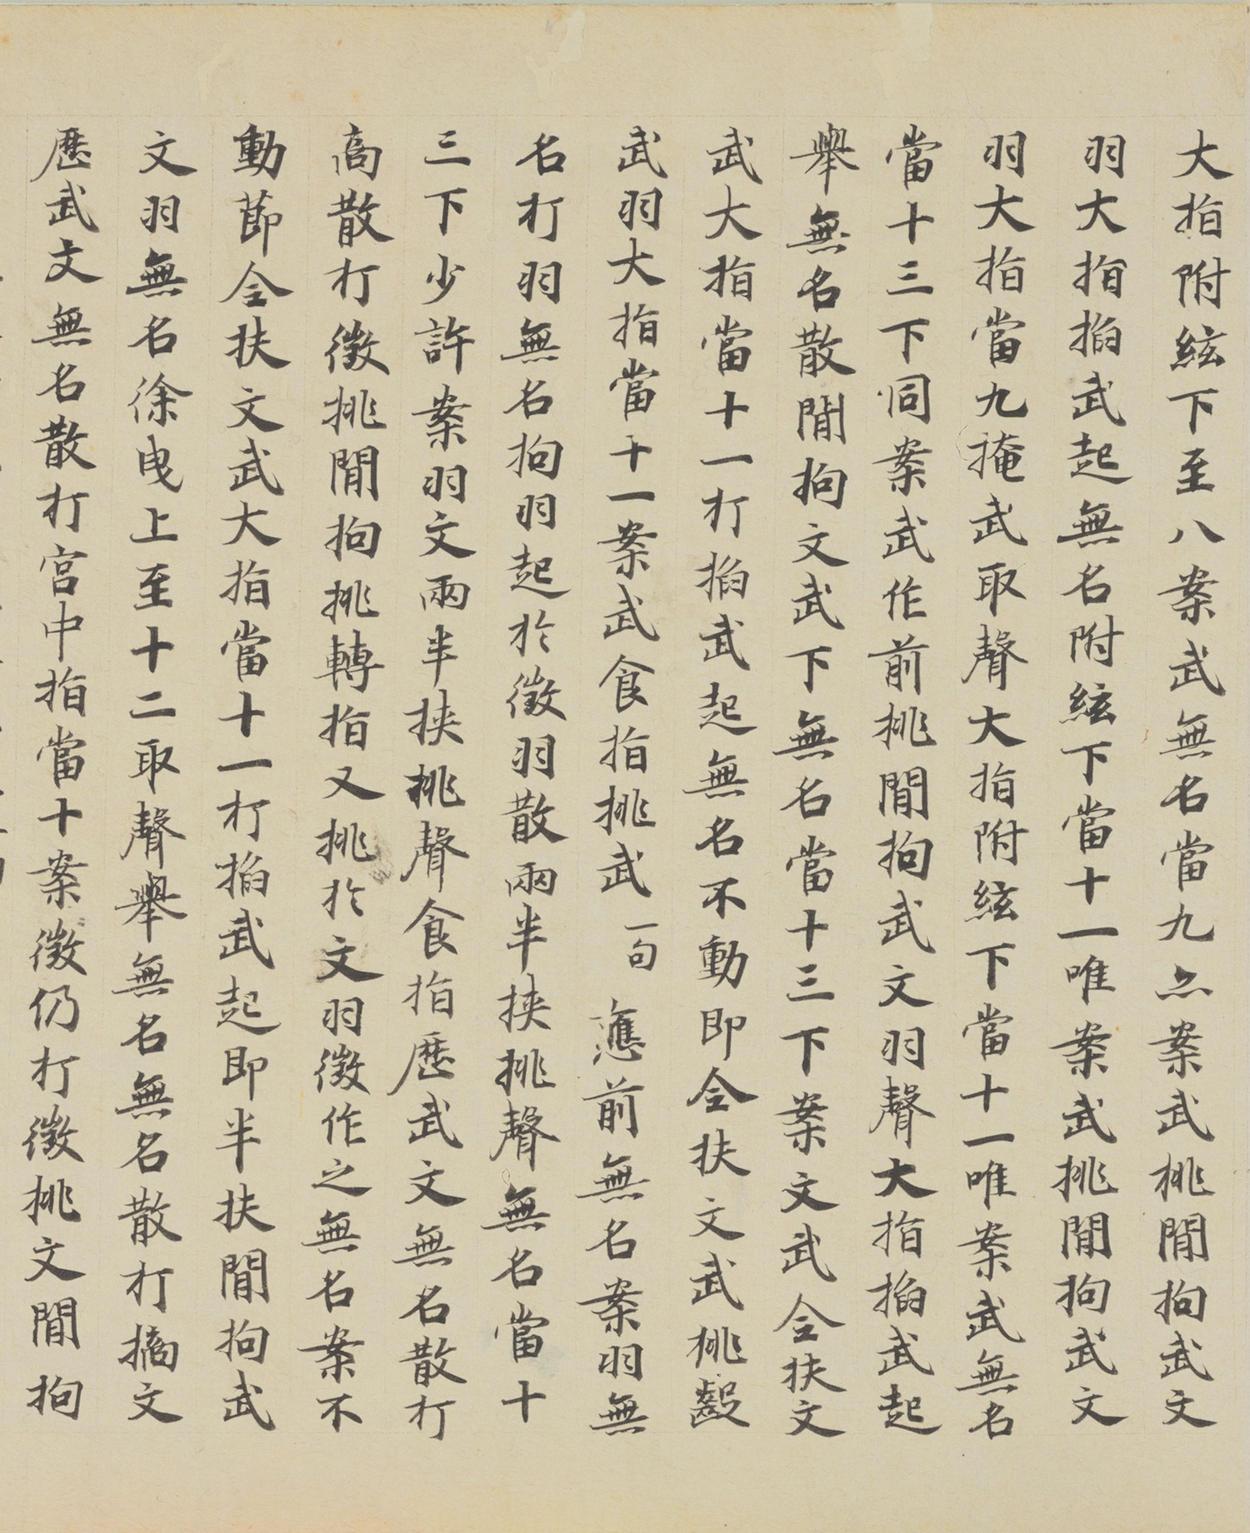 大指附絃下至八案武無名當九亦案武桃間拘武文
羽大指掐武起無名附絃下當十一唯案武挑間拘武文
羽大指當九掩武取聲大指附絃下當十一唯案武無名
當十三下同案武作前挑間拘武文羽聲大指掐武起
舉無名散間拘文武下無名當十三下案文武全扶文
武大指當十一打掐武起無名不動即全扶文武挑聲
武羽大指當十一案武食指挑武一句應前無名案羽無
名打羽無名拘羽起於徵羽散兩半挾挑聲無名當十
三下少許案羽文兩半挾挑聲食指歷武文無名散打
高散打徵挑間拘挑轉指又挑於文羽徵作之無名案不
動節全扶文武大指當十一打掐武起即半扶間拘武
文羽無名徐曳上至十二取聲舉無名無名散打摘文
歷武文無名散打宮中指當十案徵仍打徵挑文間拘